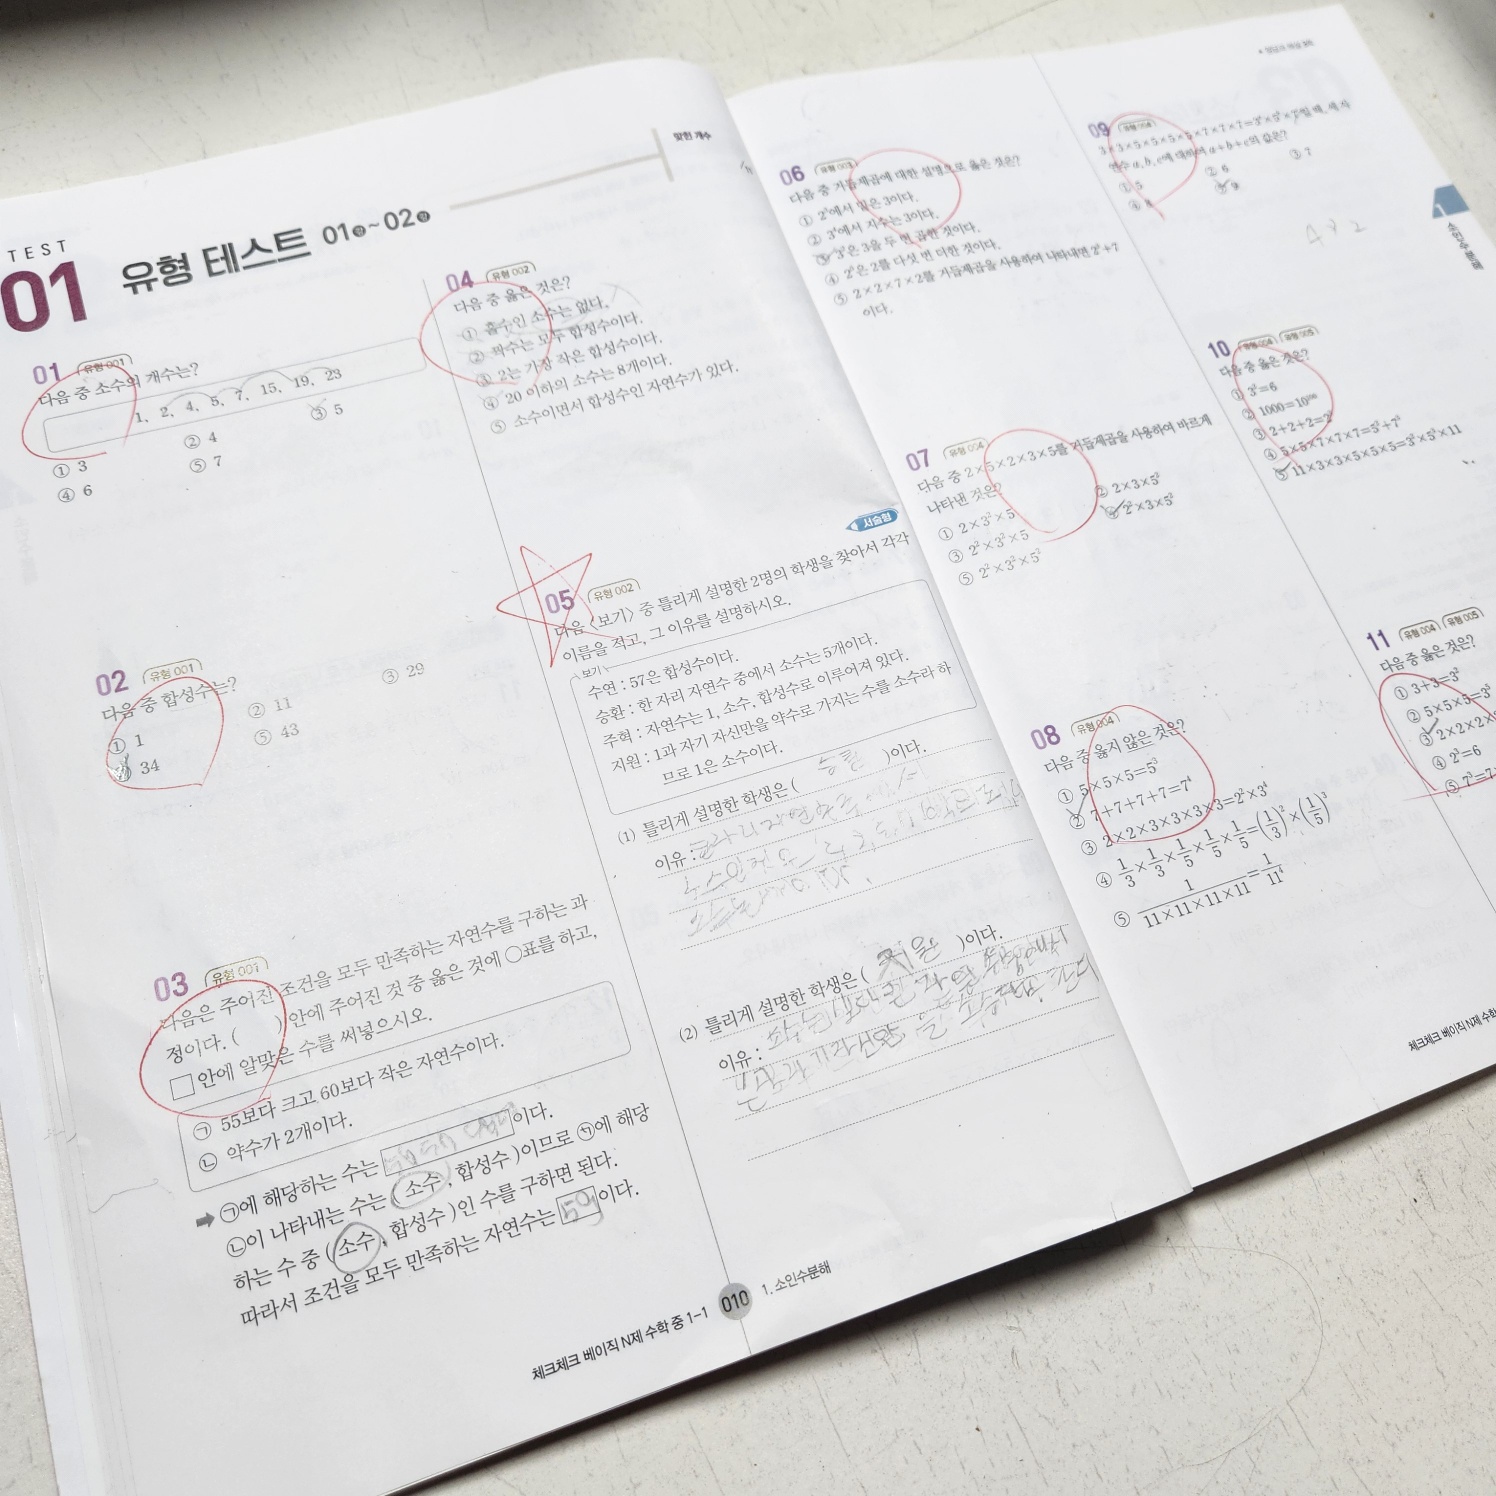 TEST
01
유형 테스트 01강~02강
맞힌 개수
01 유형 001
다음 중 소수의 개수는?
1, 2, 4, 5, 7, 15, 19, 23
① 3
② 4
③ 5
④ 6
⑤ 7
02 유형 001
다음 중 합성수는?
① 1
② 11
③ 29
34
⑤ 43
03 유형 001
다음은 주어진 조건을 모두 만족하는 자연수를 구하는 과
정이다. ( ) 안에 주어진 것 중 옳은 것에 ○표를 하고,
□ 안에 알맞은 수를 써넣으시오.
㉠ 55보다 크고 60보다 작은 자연수이다.
㉡ 약수가 2개이다.
➡ ㉠에 해당하는 수는 이다.
㉡이 나타내는 수는 (소수, 합성수)이므로 ㉠에 해당
하는 수 중 (소수, 합성수)인 수를 구하면 된다.
따라서 조건을 모두 만족하는 자연수는 59이다.
04 유형 002
다음 중 옳은 것은?
① 홀수인 소수는 없다.
② 짝수는 모두 합성수이다.
③ 2는 가장 작은 합성수이다.
④ 20 이하의 소수는 8개이다.
⑤ 소수이면서 합성수인 자연수가 있다.
서술형
05 유형 002
다음 〈보기〉 중 틀리게 설명한 2명의 학생을 찾아서 각각
이름을 적고, 그 이유를 설명하시오.
보기
수연 : 57은 합성수이다.
승환 : 한 자리 자연수 중에서 소수는 5개이다.
주혁 : 자연수는 1, 소수, 합성수로 이루어져 있다.
지원 : 1과 자기 자신만을 약수로 가지는 수를 소수라 하
므로 1은 소수이다.
(1) 틀리게 설명한 학생은 ( )이다.
이유 :
(2) 틀리게 설명한 학생은 ( )이다.
이유 :
체크체크 베이직 N제 수학 중 1-1
010
1. 소인수분해
06 유형 003
다음 중 거듭제곱에 대한 설명으로 옳은 것은?
① 2³에서 밑은 3이다.
② 3⁴에서 지수는 3이다.
③ 3²은 3을 두 번 곱한 것이다.
④ 2⁵은 2를 다섯 번 더한 것이다.
⑤ 2×2×7×2를 거듭제곱을 사용하여 나타내면 2³+7
이다.
07 유형 004
다음 중 2×5×2×3×5를 거듭제곱을 사용하여 바르게
나타낸 것은?
① 2×3²×5
② 2×3×5²
③ 2²×3²×5
④ 2²×3×5²
⑤ 2²×3²×5²
08 유형 004
다음 중 옳지 않은 것은?
① 5×5×5=5³
② 7+7+7+7=7⁴
③ 2×2×3×3×3×3=2²×3⁴
④ 1/3×1/3×1/5×1/5×1/5=(1/3)²×(1/5)³
⑤ 1/(11×11×11×11)=1/11⁴
09 유형 004
① 5
② 6
③ 7
④ 8
⑤ 9
10 유형 004 유형 005
다음 중 옳은 것은?
① 3²=6
③ 2+2+2=2³
④ 5×5×7×7×7=5²+7³
11 유형 004 유형 005
다음 중 옳은 것은?
① 3+3=3²
④ 2³=6
1
소인수분해
체크체크 베이직 N제 수학